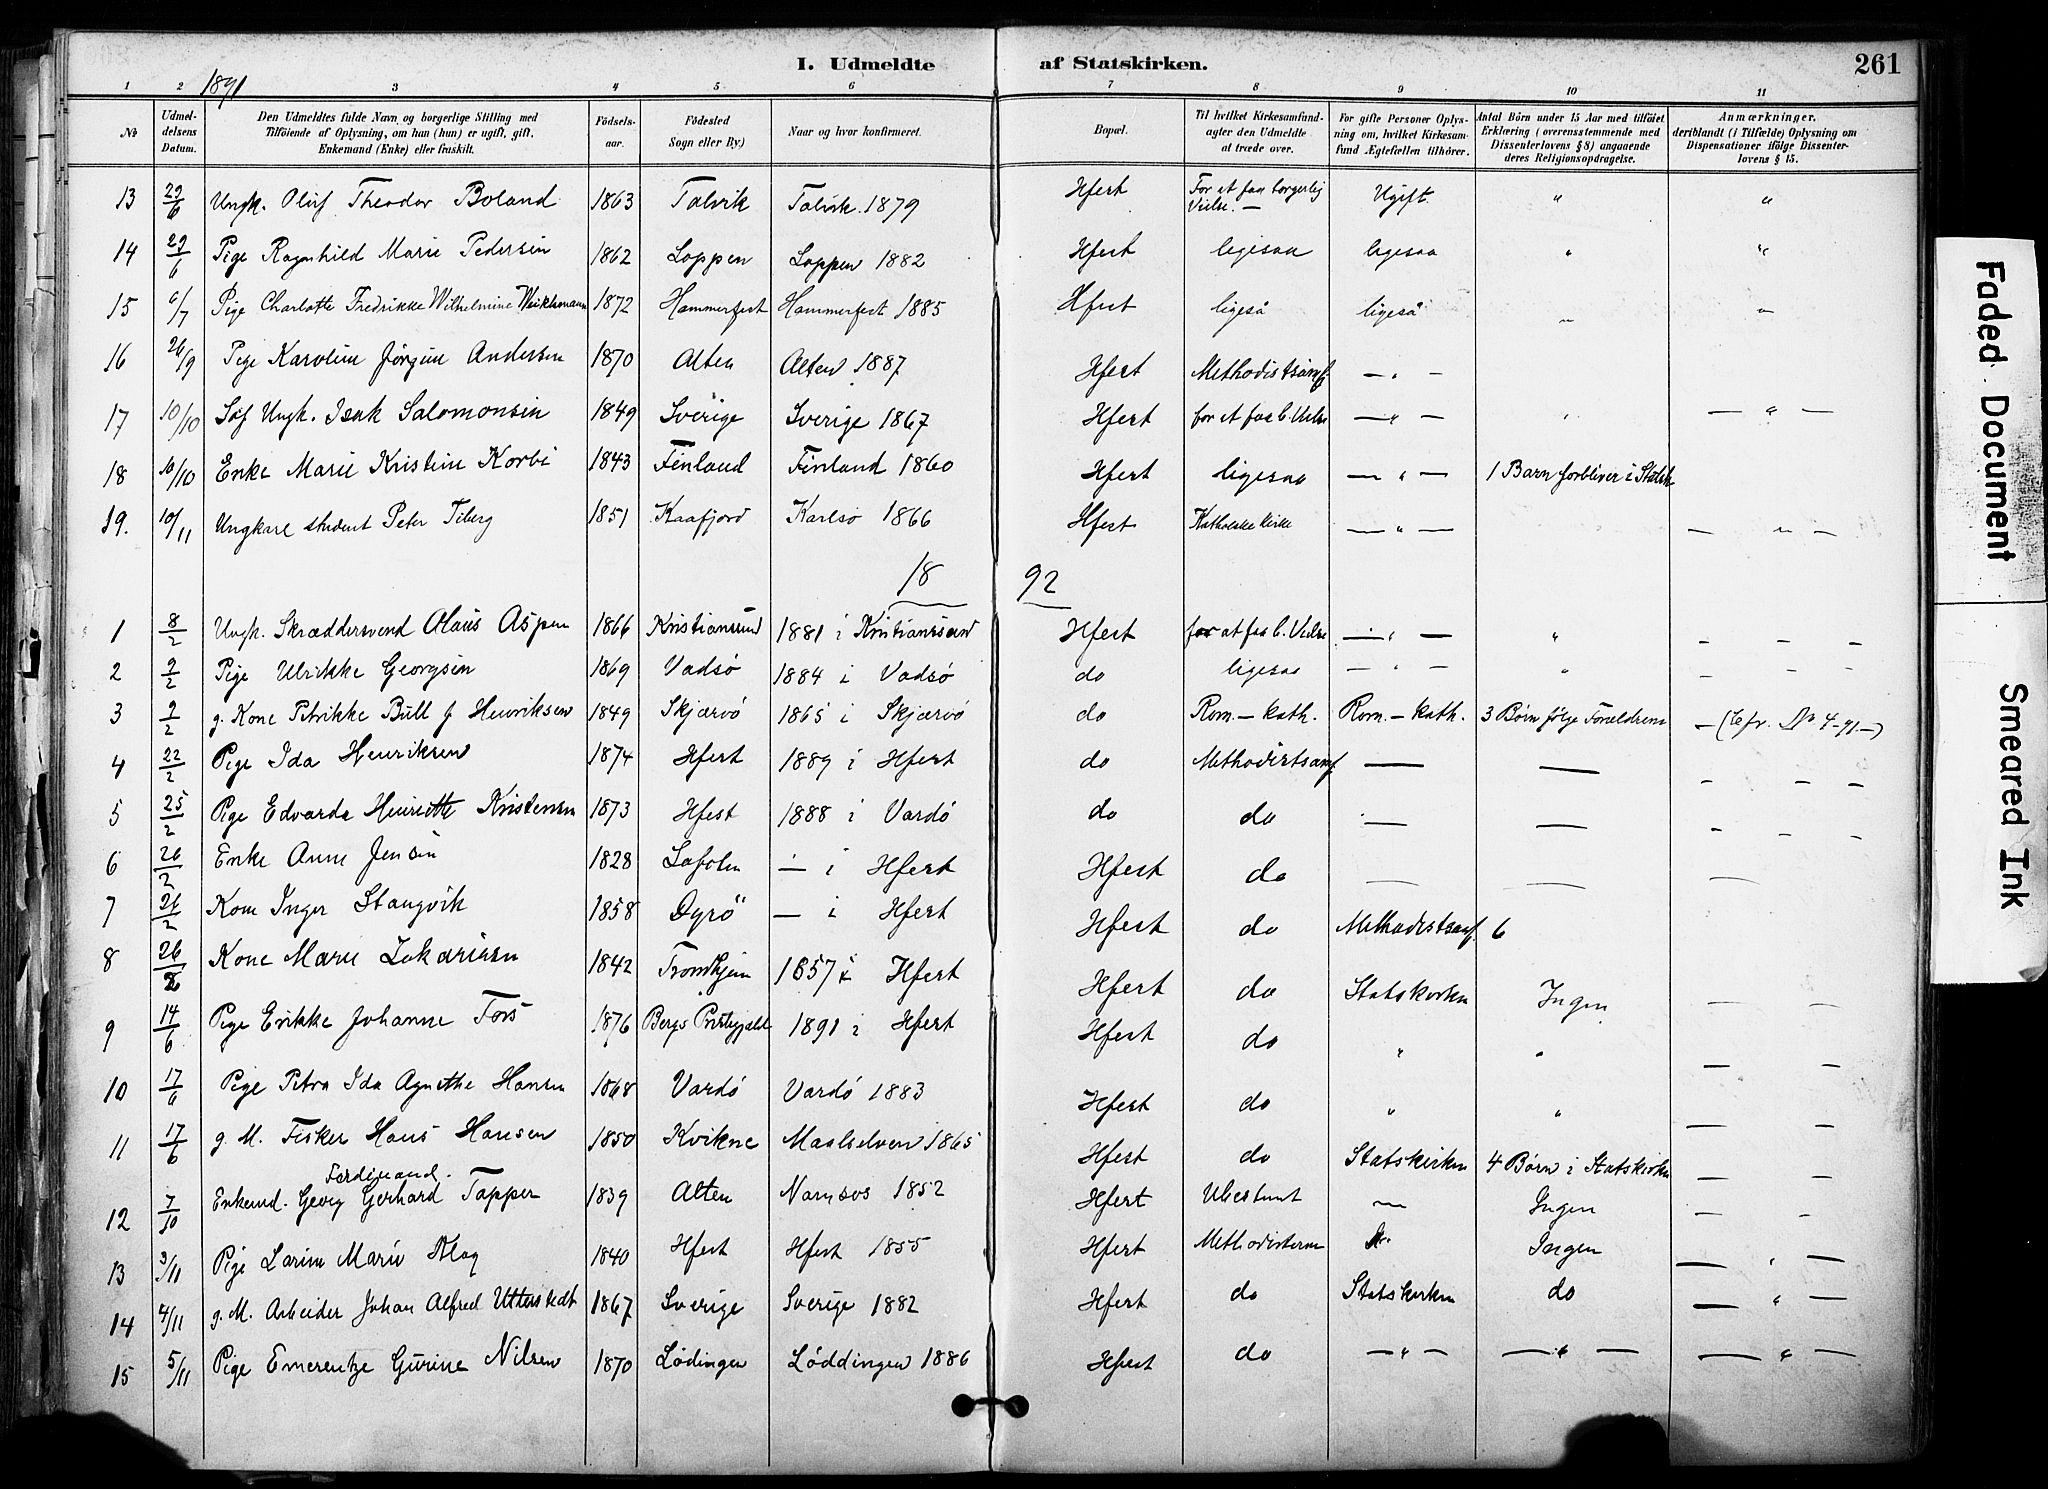 I. Udmeldte af Statskirken. 261
1891
1 2 3 4 5 6 7 8 9 10 11
№ Udmeldelsens Datum. Den Udmeldtes fulde Navn og borgerlige Stilling med Tilföiende af Oplysning, om han (hun) er ugift, gift, Enkemand (Enke) eller fraskilt. Födsels-aar. Födested Sogn eller By) Naar og hvor konfirmeret. Bopæl. Til hvilket Kirkesamfund agter den Udmeldte at træde over. For gifte Personer Oplysning om, hvilket Kirkesamfund Ægtefællen tilhörer. Antal Börn under 15 Aar med tilföiet Erklæring (overensstemmende med Dissenterlovens § 8) angaaende deres Religionsopdragelse. Anmærkninger, deriblandt (i Tilfælde) Oplysning om Dispensationer ifölge Dissenterlovens § 15.
13 29/6 Ungk. Oluf Theodor Boland 1863 Talvik Talvik 1879 Hfest For at faa borgerlig Vielse. — Ugift. " "
14 29/6 Pige Ragnhild Marie Pedersen 1862 Loppen Loppen 1882 Hfest ligesaa ligesaa " "
15 6/7 Pige Charlotte Fredrikke Wilhelmine 1872 Hammerfest Hammerfest 1885 Hfest ligeså ligeså " "
16 26/9 Pige Karoline Jörgine Andersen 1870 Alten Alten 1887 Hfest Methodistsamf. — " —
17 10/10 Ungk. Isak Salomonsen 1849 Sverige Sverige 1867 Hfest for at faa b. Vielse — " — " — " —
18 10/10 Enke Marie Kristine Korbi 1843 Finland Finland 1860 Hfest ligesaa — " — 1 Barn forbliver i Statsk
19. 10/11 Ungkarl student Peter Tiberg 1851 Kaafjord Karlsö 1866 Hfest Katholske kirke — " — — " —
1892
1 8/2 Ungk. Skræddersvend Olaus Aspen 1866 Kristiansund 1881 i Kristianssund Hfest for at faa b. Vielse — " — " — — —
2 9/2 Pige Ulrikke Georgsen 1869 Vadsö 1884 i Vadsö do ligesaa — " — " — — —
3 9/2 g. Kone Petrikke Bull f. Henriksen 1849 Skjærvö 1865 i Skjærvö do Rom. — kath. Rom. — kath. 3 Børn følge Forældrene — (cfr. № 4-91 —)
4 22/2 Pige Ida Henriksen 1874 Hfest 1889 i Hfest do Methodistsamf. — — — — —
5 25/2 Pige Edvarda Henriette Kristensen 1873 Hfest 1888 i Vardö do do — — — — —
6 26/2 Enke Anne Jensen 1828 — i Hfest Hfest do — — —
7 26/2 Kone Inger Stangvik 1858 Dyrö — i Hfest Hfest do Methodistsamf. 6
8 26/2 Kone Marie Zakarissen 1842 Trondhjem 1857 i Hfest Hfest do Statskirken Ingen — —
9 14/6 Pige Erikke Johanne Fors 1876 Bergs Præstegjeld 1891 i Hfest Hfest do " " — —
10 17/6 Pige Petra Ida Agnethe Hansen 1868 Vardö Vardö 1883 Hfest do " " — —
11 17/6 g. M. Fisker Hans Hansen 1850 Kvikne Maalselven 1865 Hfest do Statskirken 4 Børn i Statskirken — —
Ferdinand.
12 7/10 Enkemd. Georg Gerhard Tapper 1839 Alten Namsos 1852 Hfest Ubestemt — Ingen — —
13 3/11 Pige Larine Marie Klog 1840 Hfest Hfest 1855 Hfest Methodisterne Ingen — " —
14 4/11 g. M. Arbeider Johan Alfred Utterstedt 1867 Sverige Sverige 1882 Hfest do Statskirken do — " —
15 5/11 Pige Emerentze Gurine Nilsen 1870 Lödingen Löddingen 1886 Hfest do — " — — " — — " —
Faded Document
Smeared Ink